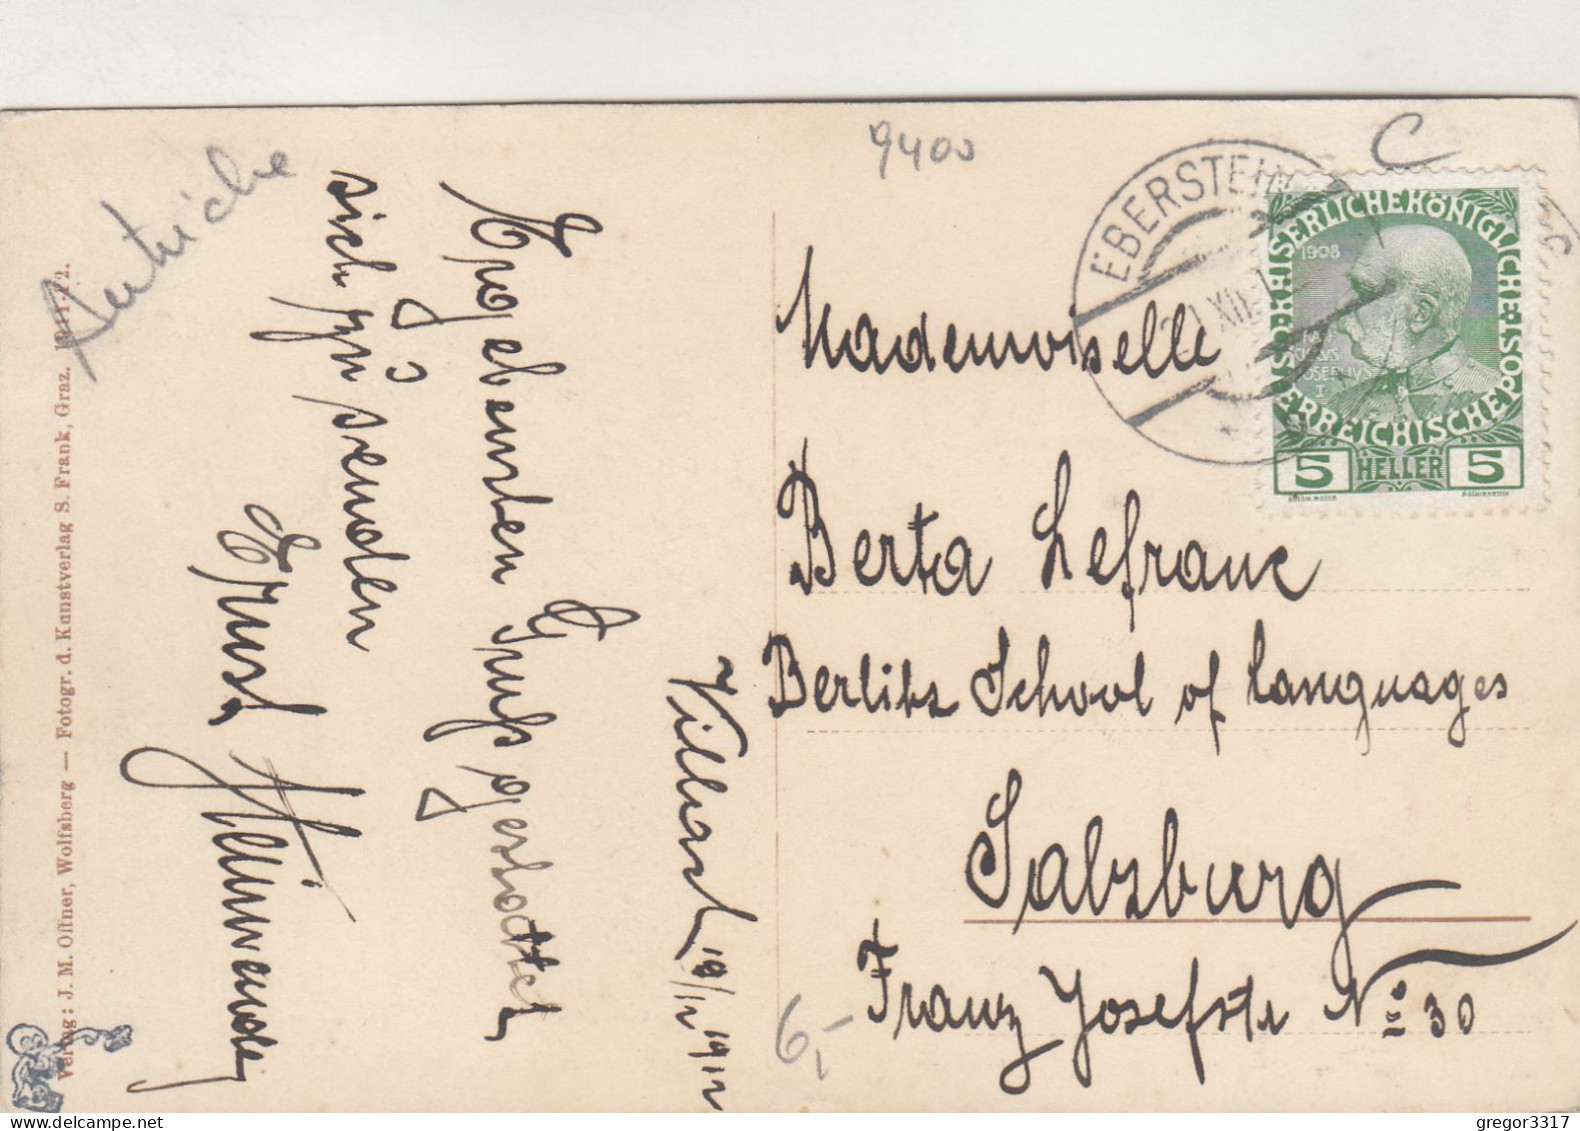 Autriche
9400
C
Villach 19/12 1912
Ergebensten Gruß gestattet
sich Ihr senden
Ernst
Mademoiselle
Berta Lefranc
Berlitz School of Languages
Salzburg
Franz Josefstr No 30
6,-
EBERSTEIN
XII
KAISERLICHE KÖNIGLICHE
ÖSTERREICHISCHE POST
1908
5 HELLER 5
Verlag: J. M. Offner, Wolfsberg — Fotogr. d. Kunstverlag S. Frank, Graz. 1911-12.
gregor3317